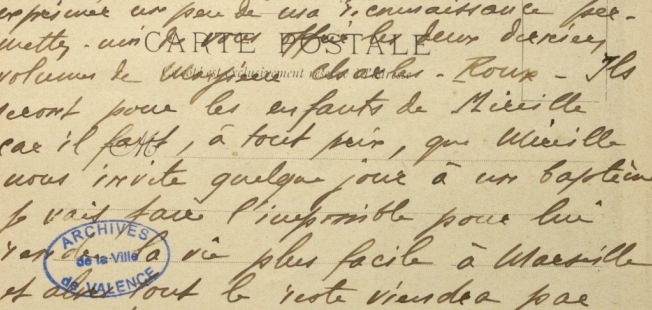 exprimer un peu de ma reconnaissance per-
mettez-moi de vous offrir les deux derniers
CARTE POSTALE
volumes de Charles-Roux - Ils
seront pour les enfants de Mireille
car il faut, à tout prix, que Mireille
nous invite quelque jour à un baptême
Je vais faire l'impossible pour lui
rendre la vie plus facile à Marseille
ARCHIVES
de la Ville
de VALENCE
et alors tout le reste viendra par